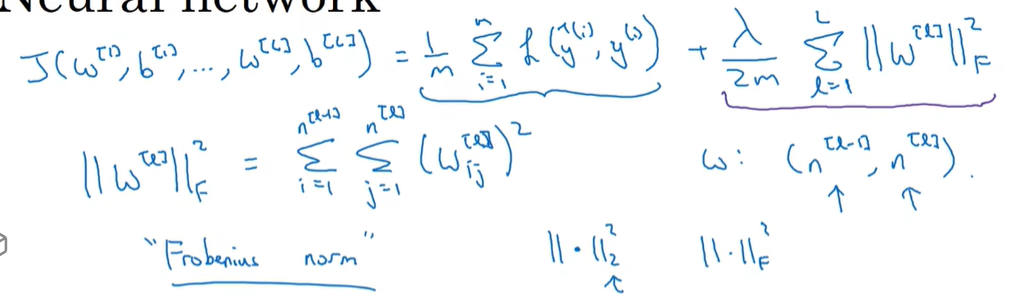 Neural network
J(ω^{[1]}, b^{[1]}, ..., ω^{[L]}, b^{[L]}) = \frac{1}{m} \sum_{i=1}^{n} ℒ(ŷ^{(i)}, y^{(i)}) + \frac{λ}{2m} \sum_{l=1}^{L} ||ω^{[l]}||_F^2
||ω^{[l]}||_F^2 = \sum_{i=1}^{n^{[l-1]}} \sum_{j=1}^{n^{[l]}} (ω_{ij}^{[l]})^2 ω: (n^{[l-1]}, n^{[l]}).
"Frobenius norm" ||·||_2^2 ||·||_F^2